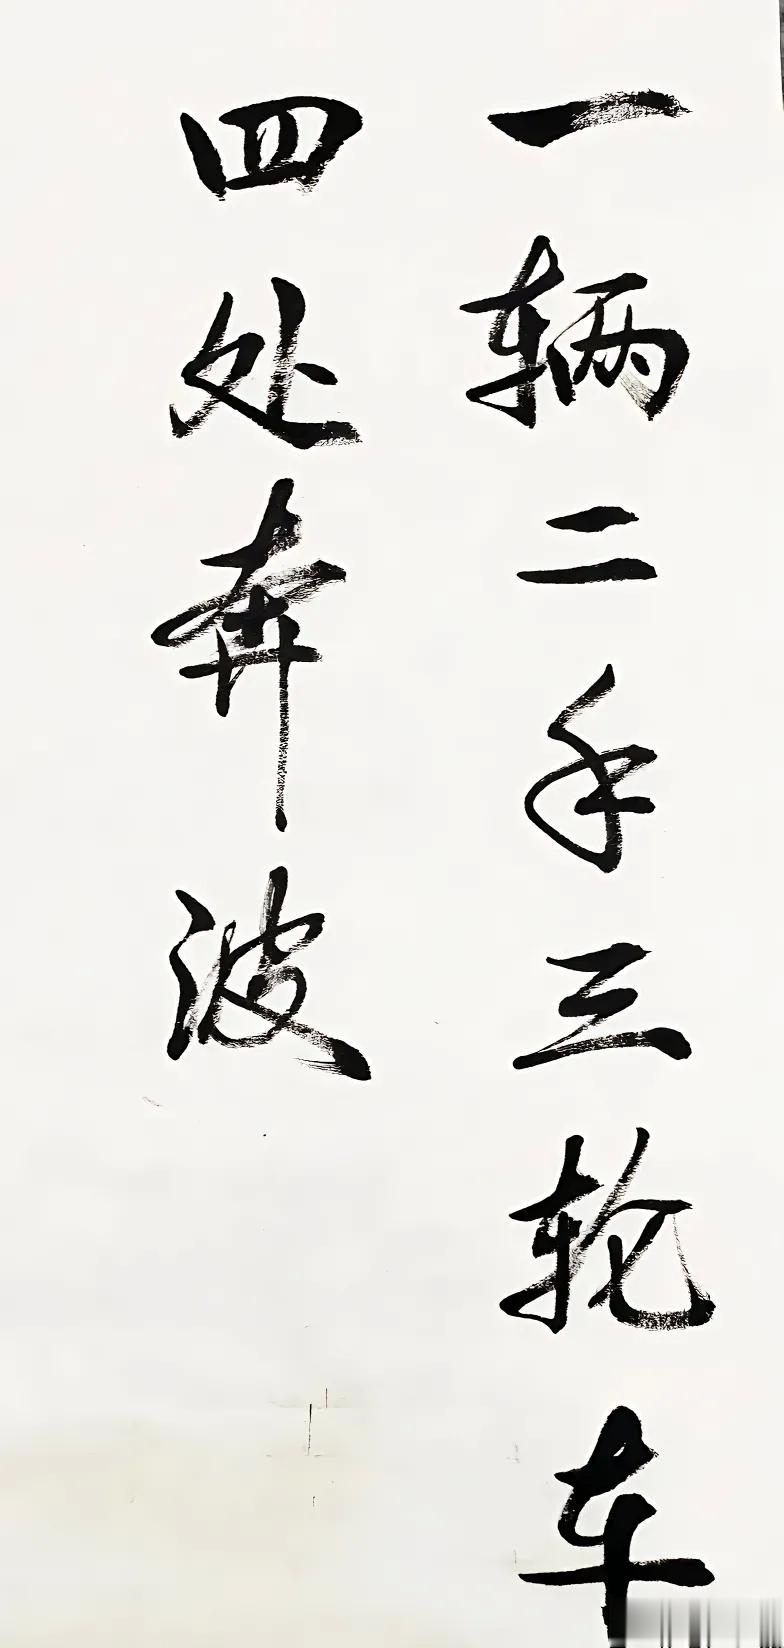 一辆二手三轮车
四处奔波